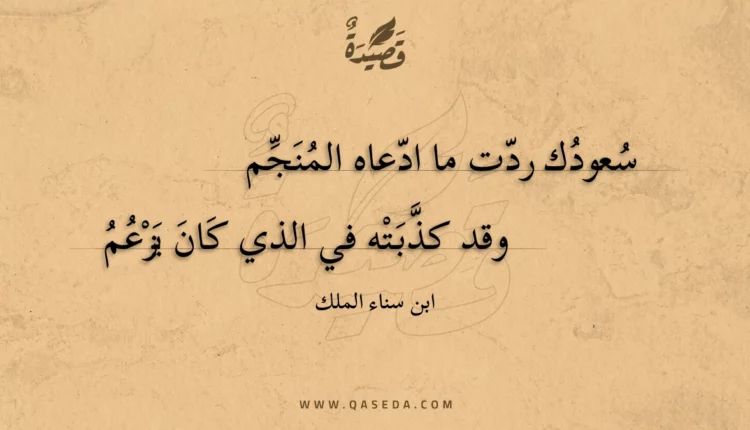 قَصِيدَةٌ
سُعودُك ردّت ما ادّعاه المُنَجِّم
وقد كذَّبَتْه في الذي كَانَ يَزْعُمُ
ابن سناء الملك
WWW.QASEDA.COM